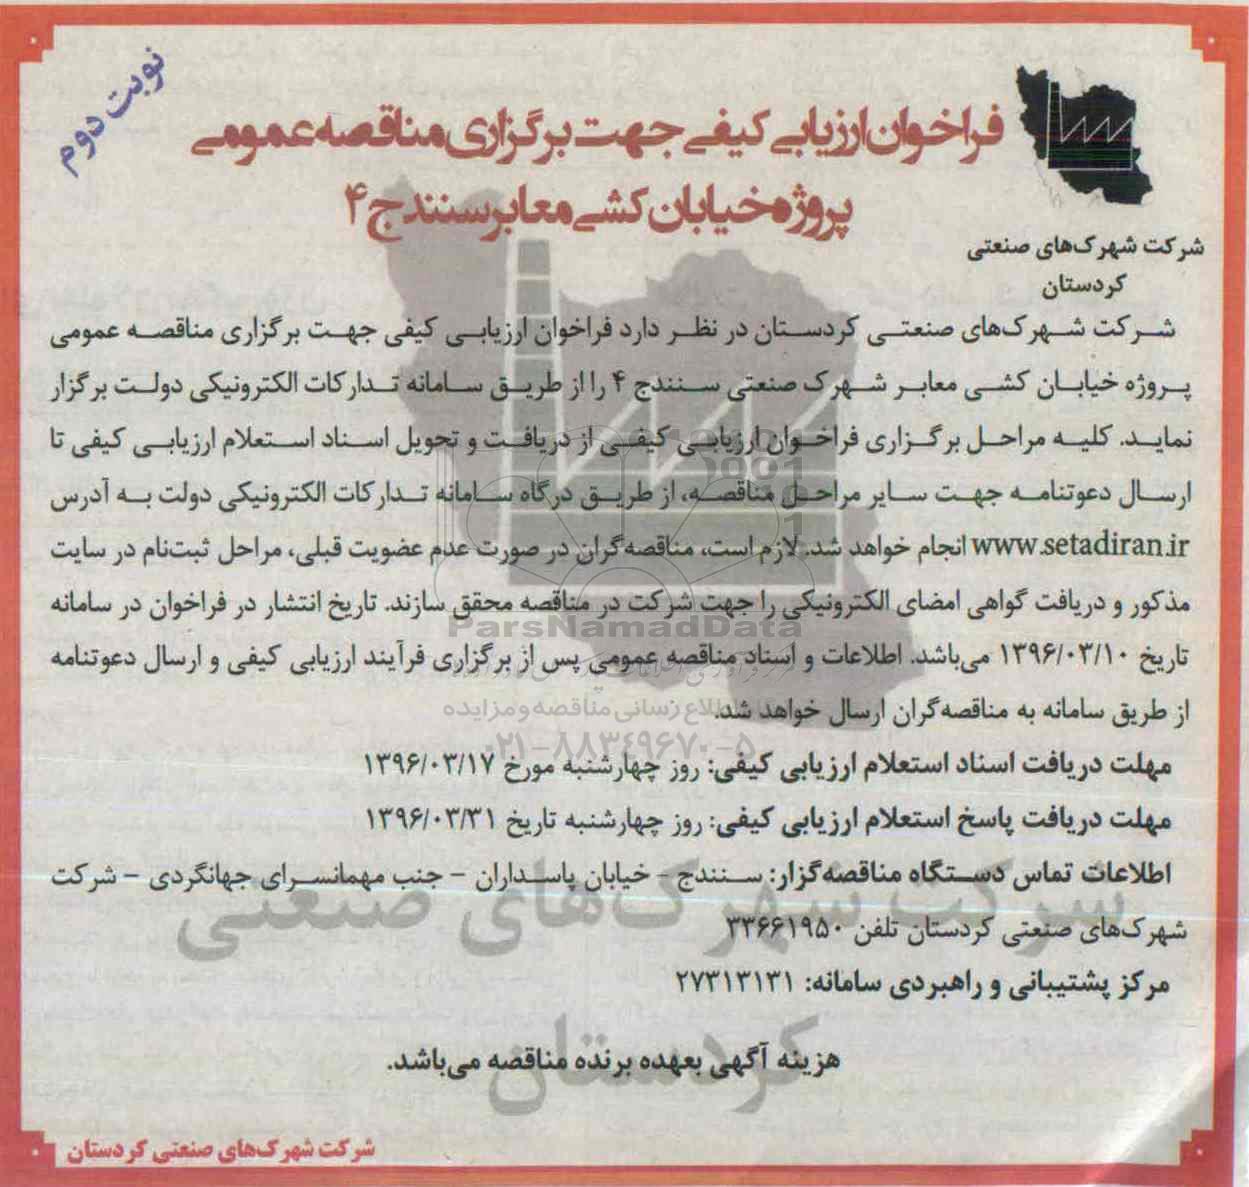 نوبت دوم
فراخوان ارزیابی کیفی جهت برگزاری مناقصه عمومی
پروژه خیابان کشی معابر سنندج ۴
شرکت شهرک‌های صنعتی
کردستان
شرکت شهرک‌های صنعتی کردستان در نظر دارد فراخوان ارزیابی کیفی جهت برگزاری مناقصه عمومی
پروژه خیابان کشی معابر شهرک صنعتی سنندج ۴ را از طریق سامانه تدارکات الکترونیکی دولت برگزار
نماید. کلیه مراحل برگزاری فراخوان ارزیابی کیفی از دریافت و تحویل اسناد استعلام ارزیابی کیفی تا
ارسال دعوتنامه جهت سایر مراحل مناقصه، از طریق درگاه سامانه تدارکات الکترونیکی دولت به آدرس
www.setadiran.ir انجام خواهد شد. لازم است، مناقصه‌گران در صورت عدم عضویت قبلی، مراحل ثبت‌نام در سایت
مذکور و دریافت گواهی امضای الکترونیکی را جهت شرکت در مناقصه محقق سازند. تاریخ انتشار در فراخوان در سامانه
تاریخ ۱۳۹۶/۰۳/۱۰ می‌باشد. اطلاعات و اسناد مناقصه عمومی پس از برگزاری فرآیند ارزیابی کیفی و ارسال دعوتنامه
از طریق سامانه به مناقصه‌گران ارسال خواهد شد.
مهلت دریافت اسناد استعلام ارزیابی کیفی: روز چهارشنبه مورخ ۱۳۹۶/۰۳/۱۷
مهلت دریافت پاسخ استعلام ارزیابی کیفی: روز چهارشنبه تاریخ ۱۳۹۶/۰۳/۳۱
اطلاعات تماس دستگاه مناقصه‌گزار: سنندج - خیابان پاسداران - جنب مهمانسرای جهانگردی - شرکت
شهرک‌های صنعتی کردستان تلفن ۳۳۶۶۱۹۵۰
مرکز پشتیبانی و راهبردی سامانه: ۲۷۳۱۳۱۳۱
هزینه آگهی بعهده برنده مناقصه می‌باشد.
شرکت شهرک‌های صنعتی کردستان
شرکت شهرک‌های صنعتی
کردستان
ParsNamadData
اطلاع رسانی مناقصه و مزایده
۰۲۱-۸۸۳۴۹۶۷۰-۵